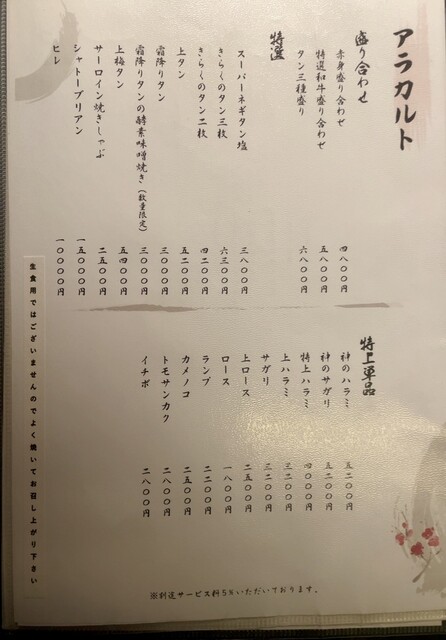 アラカルト
盛り合わせ
赤身盛り合わせ 四八〇〇円
特選和牛盛り合わせ 五八〇〇円
タン三種盛り 六八〇〇円
特選
スーパーネギタン塩 三八〇〇円
きらくのタン三枚 六三〇〇円
きらくのタン二枚 四二〇〇円
上タン 五二〇〇円
霜降りタン 三〇〇〇円
霜降りタンの酵素味噌焼き(数量限定) 三〇〇〇円
上梅タン 五四〇〇円
サーロイン焼きしゃぶ 二五〇〇円
シャトーブリアン 一五〇〇〇円
ヒレ 一〇〇〇〇円
特上単品
神のハラミ 五二〇〇円
神のサガリ 五二〇〇円
特上ハラミ 四〇〇〇円
上ハラミ 三二〇〇円
サガリ 三二〇〇円
上ロース 二五〇〇円
ロース 一八〇〇円
ランプ 二二〇〇円
カメノコ 二五〇〇円
トモサンカク 二八〇〇円
イチボ 二八〇〇円
生食用ではございませんのでよく焼いてお召し上がり下さい
※別途サービス料5%いただいております。